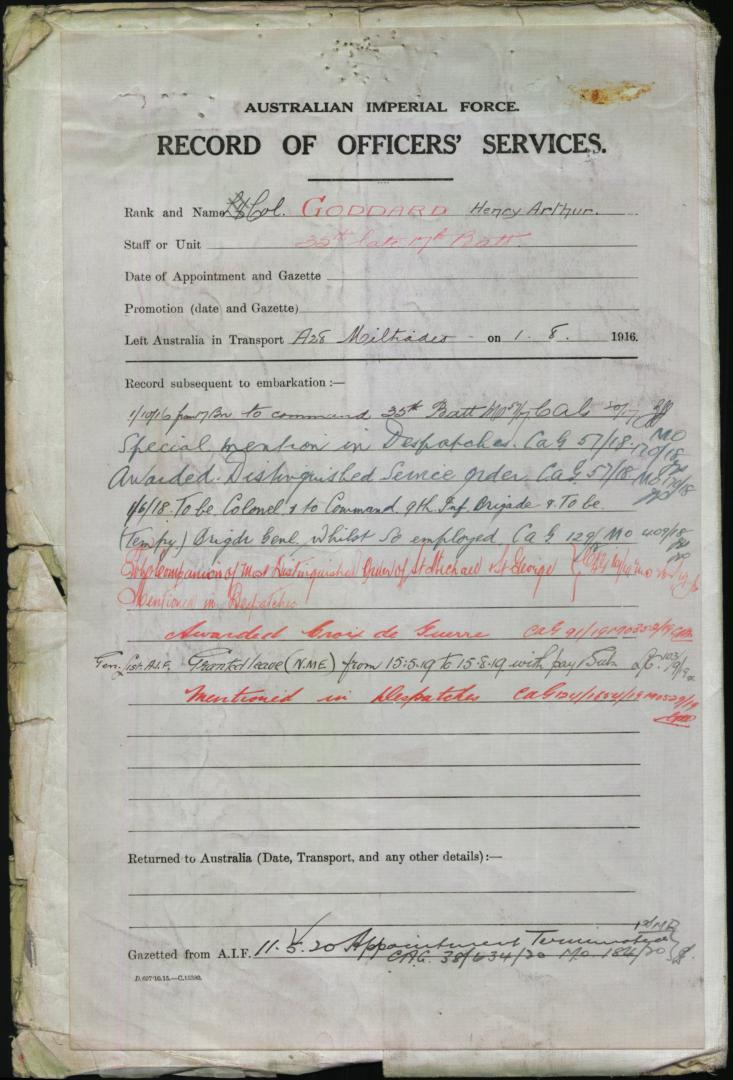 AUSTRALIAN IMPERIAL FORCE.
RECORD OF OFFICERS' SERVICES.
Rank and Name Lt Col. GODDARD Henry Arthur.
Staff or Unit 35th late 17th Batt.
Date of Appointment and Gazette
Promotion (date and Gazette)
Left Australia in Transport A28 Miltiades on 1. 8. 1916.
Record subsequent to embarkation :—
1/10/16 from 17 Bn to command 35th Batt
Special mention in Despatches. CaG 57/18. MO 170/18
Awarded Distinguished Service Order. CaG. 57/18 MO 170/18
1/6/18. To be Colonel & to Command 9th Inf Brigade & To be
(Tempy) Brigdr Genl, whilst so employed CaG 129/18 MO 409/18
Companion of Most Distinguished Order of St Michael & St George
Mentioned in Despatches
Awarded Croix de Guerre CaG 91/19
Gen. List. A.I.F. Granted leave (N.M.E.) from 15.5.19 to 15.8.19 with pay
Mentioned in Despatches CaG 124/
Returned to Australia (Date, Transport, and any other details) :—
Gazetted from A.I.F. 11.5.20 Appointment Terminated 1st MD
CAG. 38/634/20 Mo. 184/20
D.697/10.15.—C.13290.